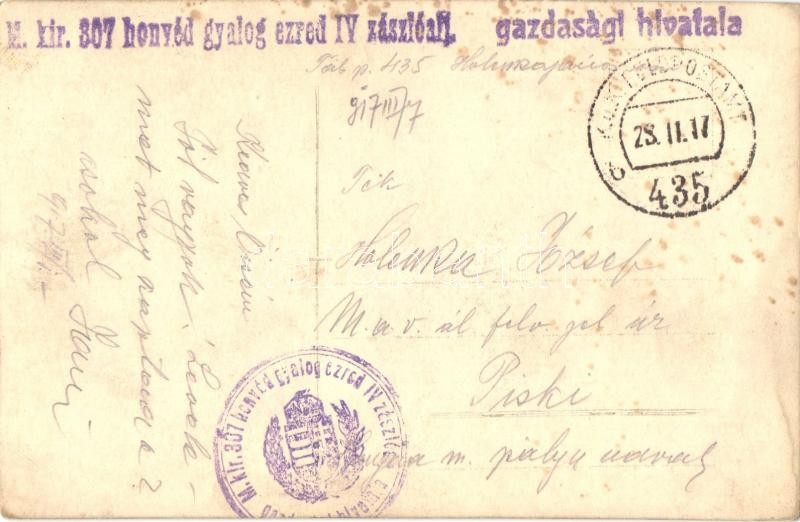 M. kir. 307 honvéd gyalog ezred IV zászlóalj. gazdasági hivatala
Táb p. 435
917 III/7
K.u.K. FELDPOSTAMT
28. II. 17
435
Kedves Öcsém
Jól vagyok. Levele-
met meg kaptad e?
csókol
Tek
Holuska József
M.a.v. ál. felv. gel úr
Piski
Hunyad m. pálya udvar
M. kir. 307 honvéd gyalog ezred IV zászlóalj